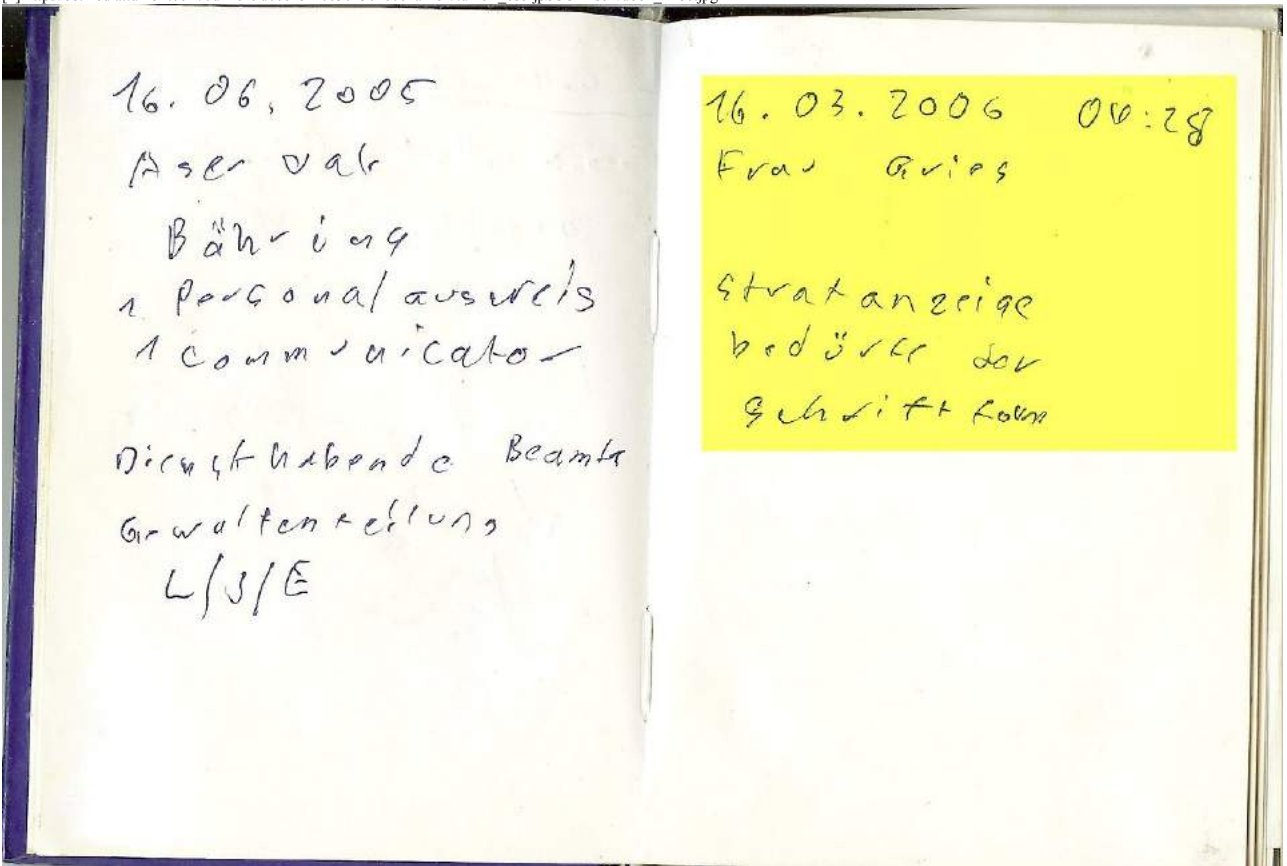 16. 06. 2005
Bähring
1 Personalausweis
1 Communicator
Diensthabende Beamte
Gewaltenteilung
L/J/E
16. 03. 2006
Frau Gries
Strafanzeige
bedürfe der
Schriftform